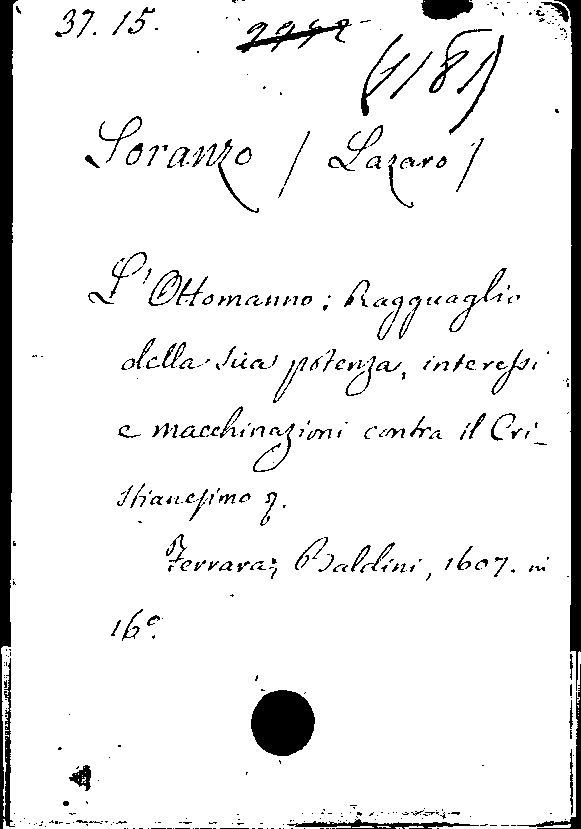 37. 15.
(1181)
Soranzo / Lazaro /
L'Ottomanno: Ragguaglio
della sua potenza, interessi
e macchinazioni contra il Cri-
stianesimo
Ferrara, Baldini, 1607. in
16°.